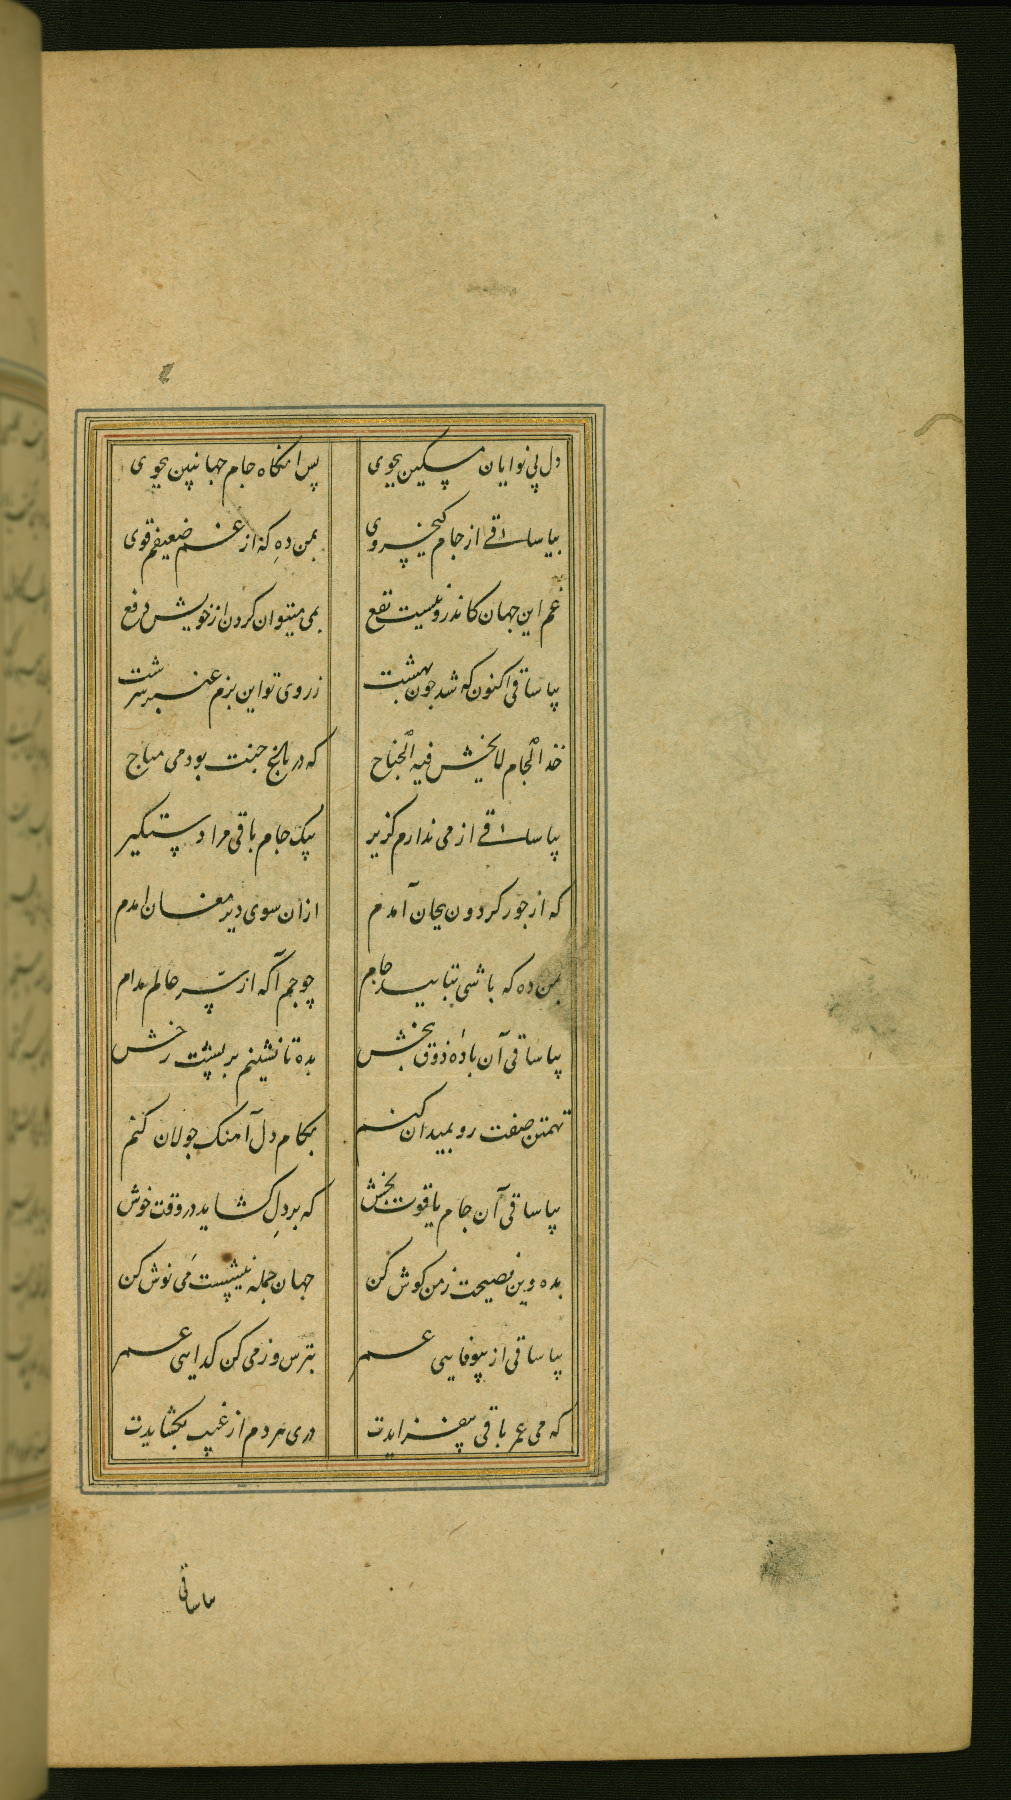 دل بی نوایان مسکین بجوی پس انکاه جام جهانبین بجوی
بیا ساقی از جام کیخسروی بمن ده که از غم ضعیفم قوی
غم این جهان کاندرو نیست نفع بمی میتوان کردن از خویش دفع
بیا ساقی اکنون که شد چون بهشت ز روی تو این بزم عنبر سرشت
خذ الجام لا تخش فیه الجناح که در باغ جنت بود می مباح
بیا ساقی از می ندارم کزیر بیک جام باقی مرا دستکیر
که از جور کردون بجان آمدم ازان سوی دیر مغان امدم
بمن ده که باشی بتایید جام چو جم آکه از سر عالم مدام
بیا ساقی آن بادۀ ذوق بخش بده تا نشینم بر پشت رخش
تهمتن صفت رو بمیدان کنم بکام دل آهنک جولان کنم
بیا ساقی آن جام یاقوت بخش که بر دل کشاید در وقت خوش
بده وین نصیحت ز من کوش کن جهان جمله نیشیست می نوش کن
بیا ساقی از بیوفایی عمر بترس و ز می کن کدایی عمر
که می عمر باقی بیفزایدت دری هر دم از غیب بکشایدت
بیا ساقی